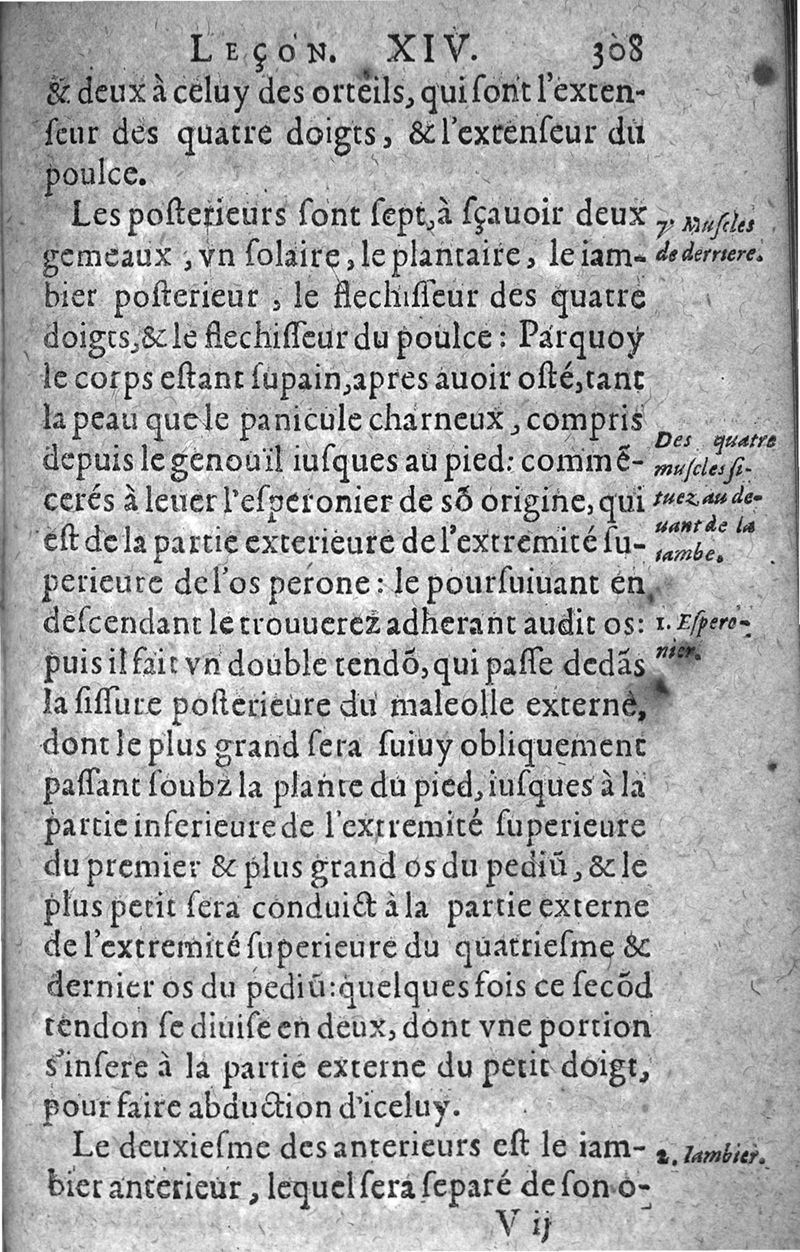 Leçon. XIV. 308
& deux à celuy des orteils, qui ſont l'exten-
ſeur des quatre doigts, & l'extenſeur du
poulce.
Les poſterieurs ſont ſept, à ſçauoir deux
gemeaux, vn ſolaire, le plantaire, le iam-
bier poſterieur, le flechiſſeur des quatre
doigts, & le flechiſſeur du poulce: Parquoy
le corps eſtant ſupain, apres auoir oſté, tant
la peau que le panicule charneux, compris
depuis le genouïl iuſques au pied: commẽ-
cerés à leuer l'eſperonier de sõ origine, qui
eſt de la partie exterieure de l'extremité ſu-
perieure de l'os perone: le pourſuiuant en
deſcendant le trouuerez adherant audit os:
puis il fait vn double tendõ, qui paſſe dedãs
la ſiſſure poſterieure du maleolle externe,
dont le plus grand ſera ſuiuy obliquement
paſſant ſoubz la plante du pied, iuſques à la
partie inferieure de l'extremité ſuperieure
du premier & plus grand os du pediũ, & le
plus petit ſera conduict à la partie externe
de l'extremité ſuperieure du quatrieſme &
dernier os du pediũ: quelques fois ce ſecõd
tendon ſe diuiſe en deux, dont vne portion
s'inſere à la partie externe du petit doigt,
pour faire abduction d'iceluy.
Le deuxieſme des anterieurs eſt le iam-
bier anterieur, lequel ſera ſeparé de ſon o-
V ij
7. Muſcles
de derriere.
Des quatre
muſcles ſi-
tuez au de-
uant de la
iambe.
1. Eſpero-
nier.
2. Iambier.